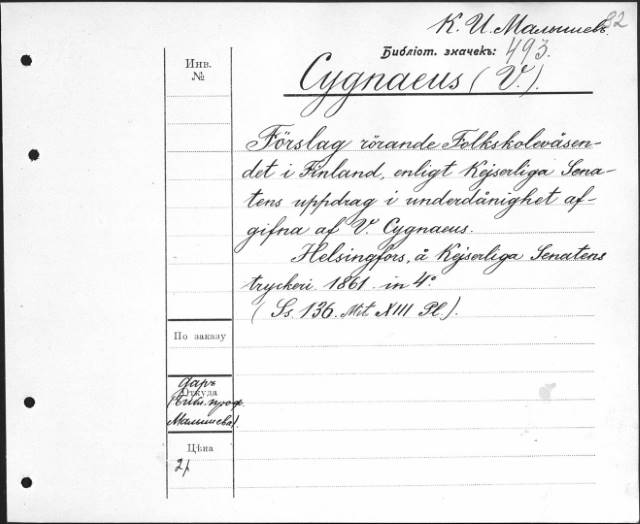 К. И. Малышевъ. 82
Библіот. значекъ: 493.
Инв.
№
Cygnaeus (V.).
Förslag rörande Folkskoleväsen-
det i Finland, enligt Kejserliga Sena-
tens uppdrag i underdånighet af-
gifna af V. Cygnaeus.
Helsingfors, å Kejserliga Senatens
tryckeri. 1861. in 4º.
(Ss. 136. Mit XIII Pl.).
По заказу
Даръ
Откуда
(Библ. проф.
Малышева).
Цѣна
2р